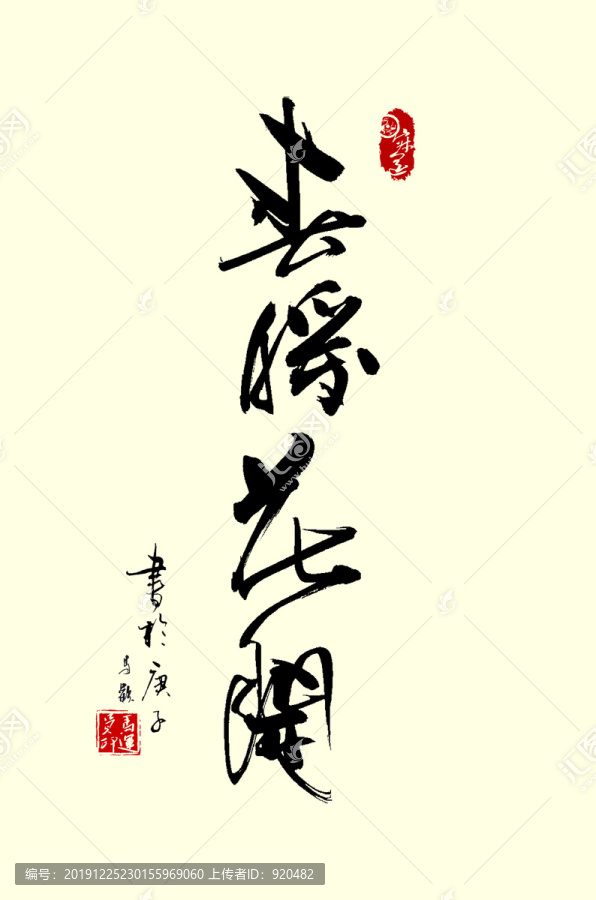 春暖花開
書於庚子
編号：20191225230155969060 上传者ID：920482